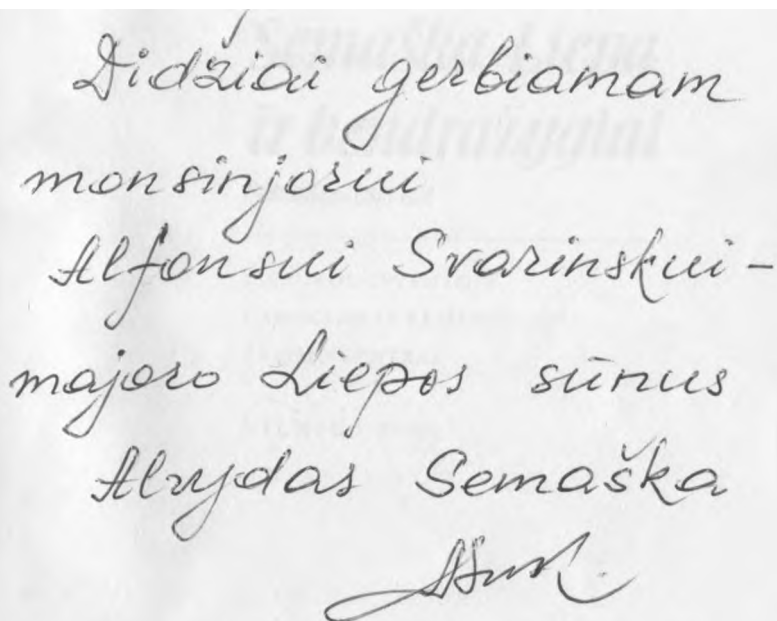 Didžiai gerbiamam
monsinjorui
Alfonsui Svarinskui –
majoro Liepos sūnus
Alvydas Semaška